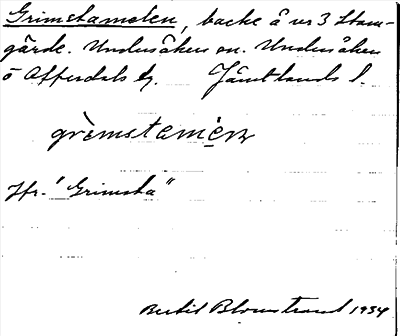 Grimstamoten, backe å nr 3 Stam-
gärde. Undersåkers sn. Undersåkers
o Offerdals tg. Jämtlands l.
grèmstamèn
Jfr. "Grimsta"
Bertil Blomstrand 1934